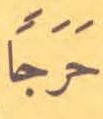 حَرَجًا